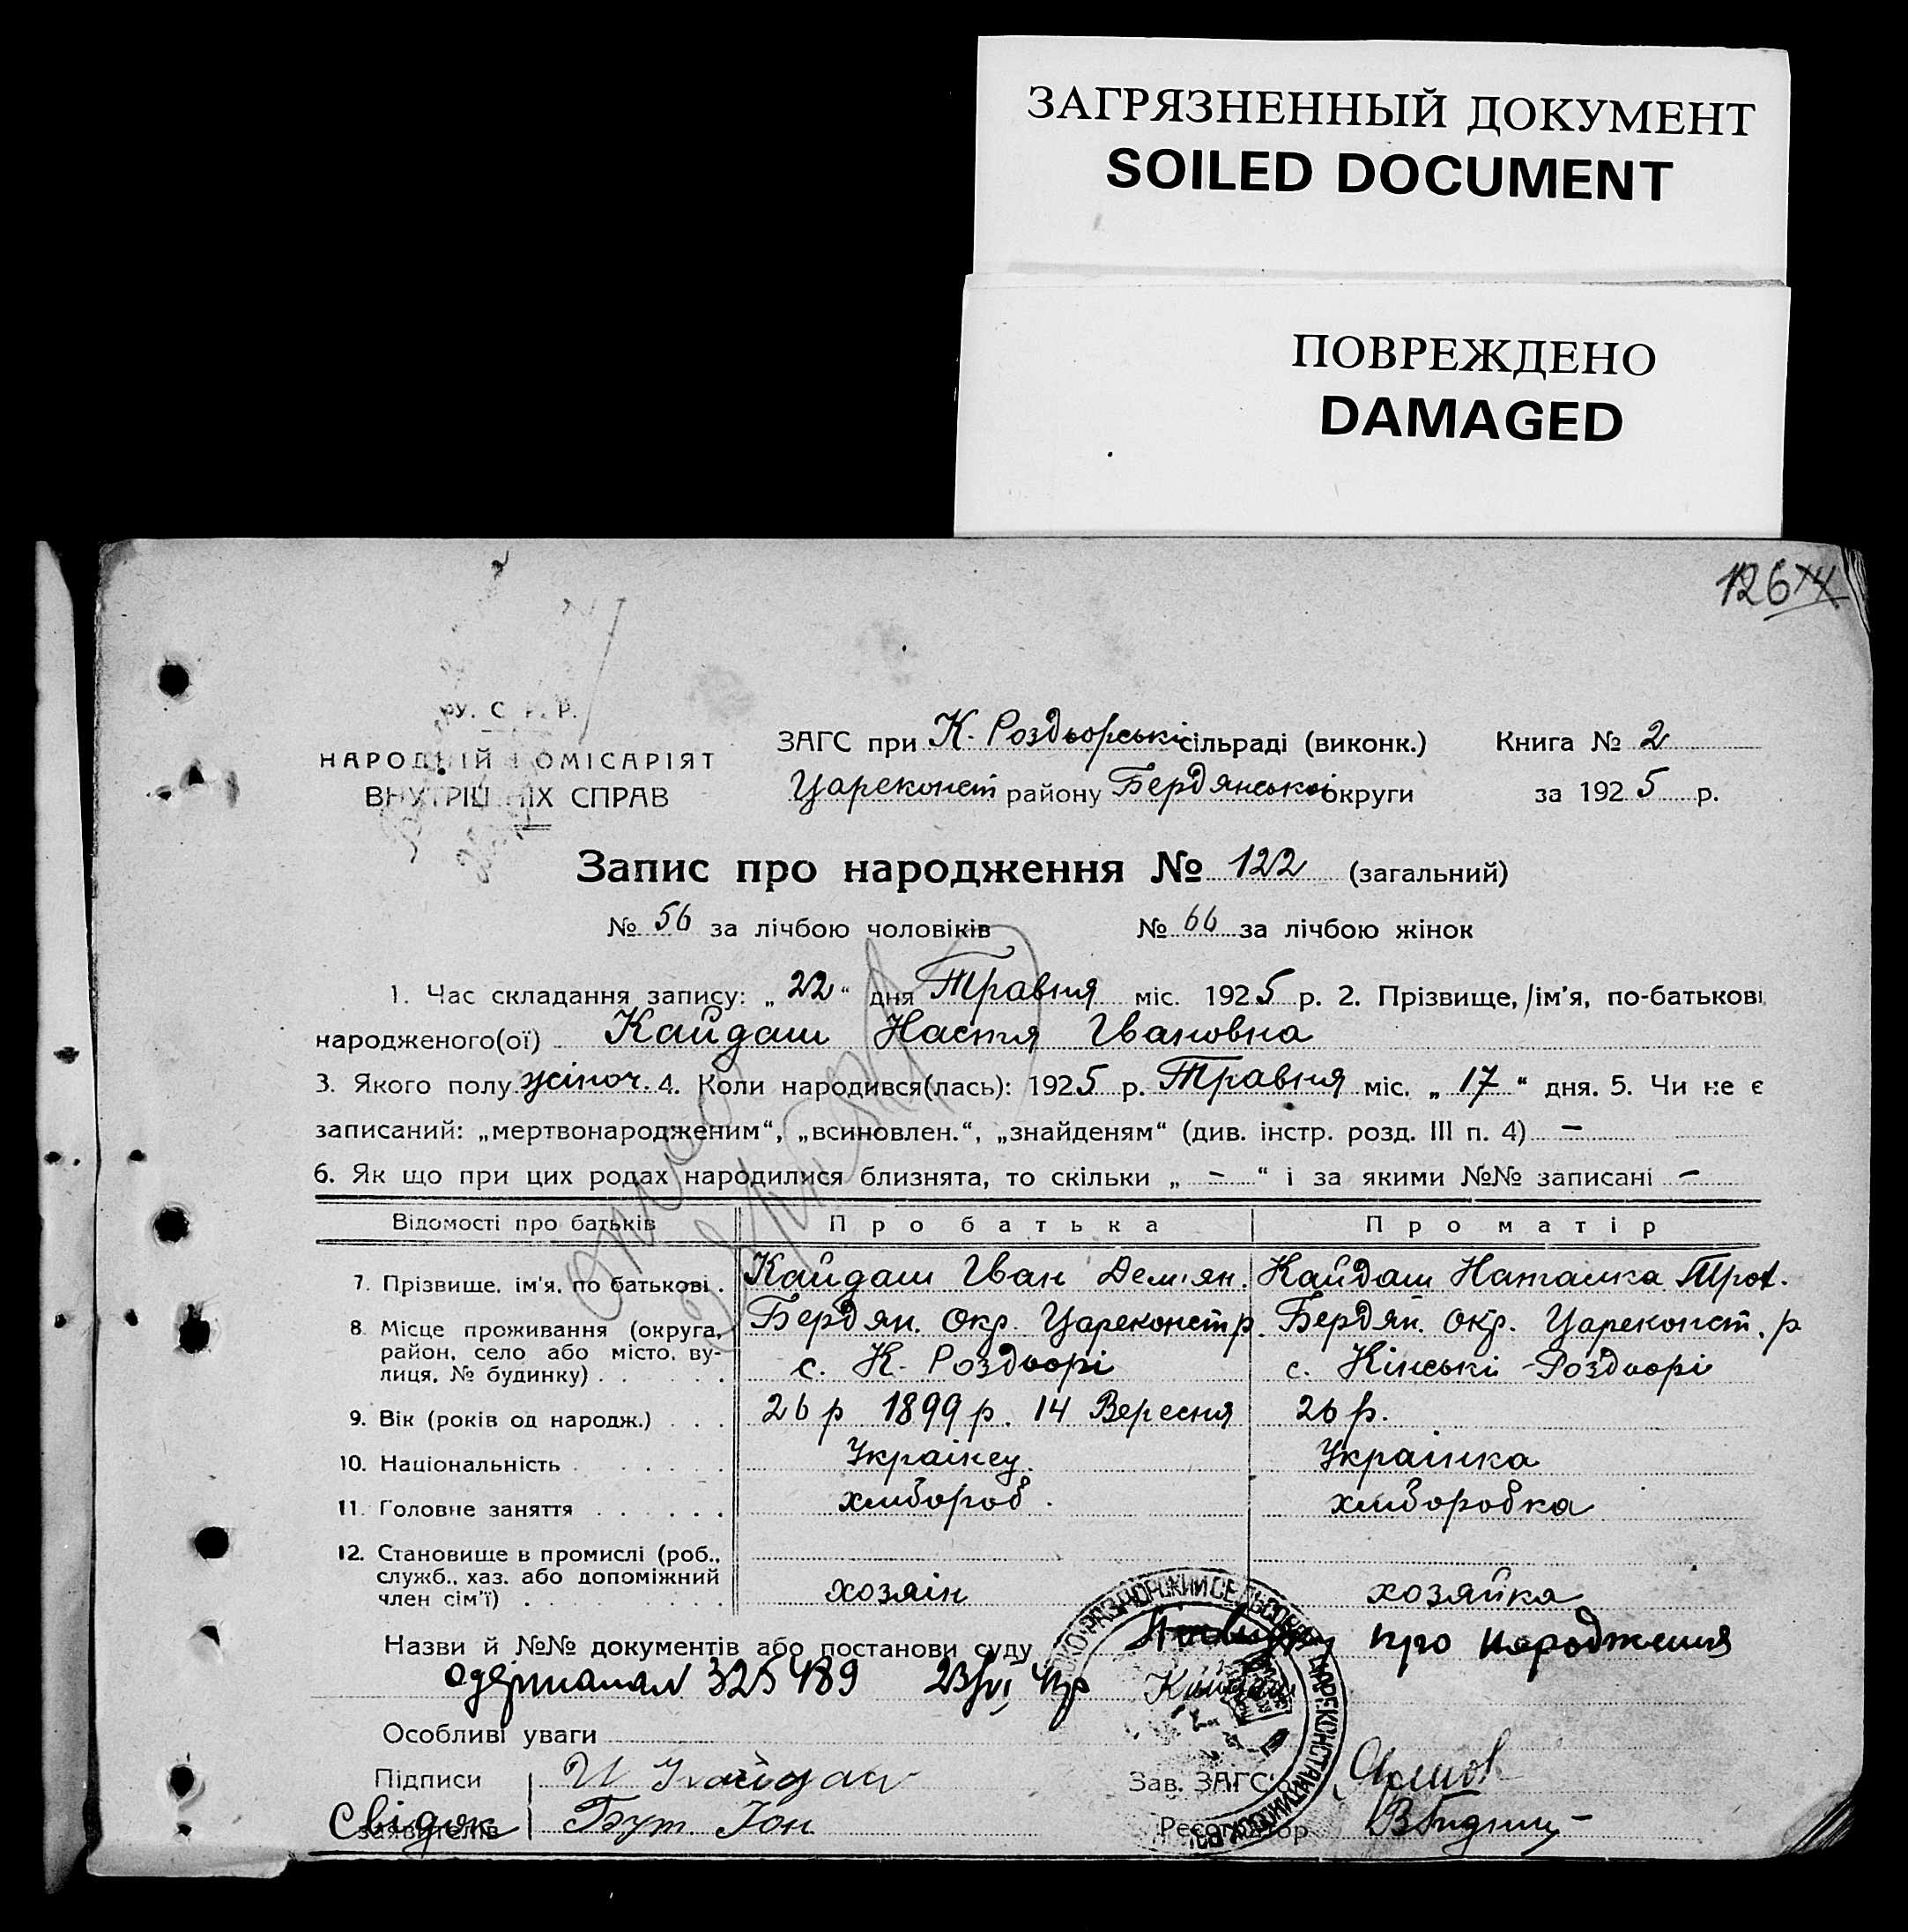 ЗАГРЯЗНЕННЫЙ ДОКУМЕНТ
SOILED DOCUMENT
ПОВРЕЖДЕНО
DAMAGED
126
У. С. Р. Р.
НАРОДНІЙ КОМІСАРІЯТ
ВНУТРІШНІХ СПРАВ
ЗАГС при К. Роздорські сільраді (виконк.) Книга № 2
Цареконст району Бердянської округи за 1925 р.
Запис про народження № 122 (загальний)
№ 56 за лічбою чоловіків № 66 за лічбою жінок
1. Час складання запису: „22“ дня Травня міс. 1925 р. 2. Прізвище, ім'я, по-батькові
народженого(ої) Кайдаш Настя Івановна
3. Якого полу жіноч. 4. Коли народився(лась): 1925 р. Травня міс. „17“ дня. 5. Чи не є
записаний: „мертвонародженим“, „всиновлен.“, „знайденям“ (див. інстр. розд. III п. 4) –
6. Як що при цих родах народилися близнята, то скільки „ – “ і за якими №№ записані –
Відомості про батьків Про батька Про матір
7. Прізвище, ім'я, по батькові. Кайдаш Іван Дем'ян. Кайдаш Наталка Троф.
8. Місце проживання (округа, район, село або місто, вулиця, № будинку) Бердян. Окр. Цареконст р. с. К. Роздорі Бердян. Окр. Цареконст. р. с. Кінські Роздорі
9. Вік (років од народж.) 26 р 1899 р. 14 Вересня 26 р.
10. Національність Українец. Українка
11. Головне заняття хлібороб. хлібробка
12. Становище в промислі (роб., служб., хаз. або допоміжний член сім'ї) хозяін хозяйка
Назви й №№ документів або постанови суду про народження
одержала 325489 Кайдаш
Особливі уваги
Підписи И Кайдаш Зав. ЗАГС'ом
Свідок заявителів Бут Іон Реєстратор